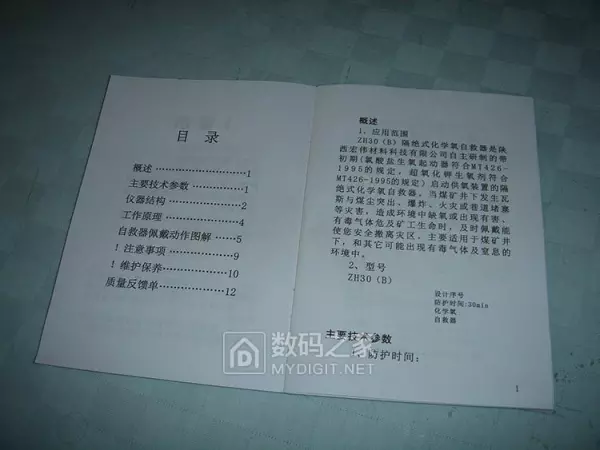 目 录
概述 ……………………1
主要技术参数 …………1
仪器结构 ………………2
工作原理 ………………4
自救器佩戴动作图解 ……5
! 注意事项 ……………9
! 维护保养 ……………10
质量反馈单 ……………12
概述
1、应用范围
ZH30(B)隔绝式化学氧自救器是陕
西宏伟材料科技有限公司自主研制的带
初期(氯酸盐生氧起动器符合MT426-
1995的规定,超氧化钾生氧剂符合
MT426-1995的规定)启动供氧装置的隔
绝式化学氧自救器。当煤矿井下发生瓦
斯与煤尘突出、爆炸、火灾或巷道堵塞
等灾害,造成环境中缺氧或出现有害、
有毒气体危及矿工生命时,及时佩戴能
使您安全撤离灾区,主要适用于煤矿井
下,和其它可能出现有毒气体及窒息的
环境中。
2、型号
ZH30(B)
设计序号
防护时间:30min
化学氧
自救器
主要技术参数
防护时间:
1
数码之家
MYDIGIT.NET